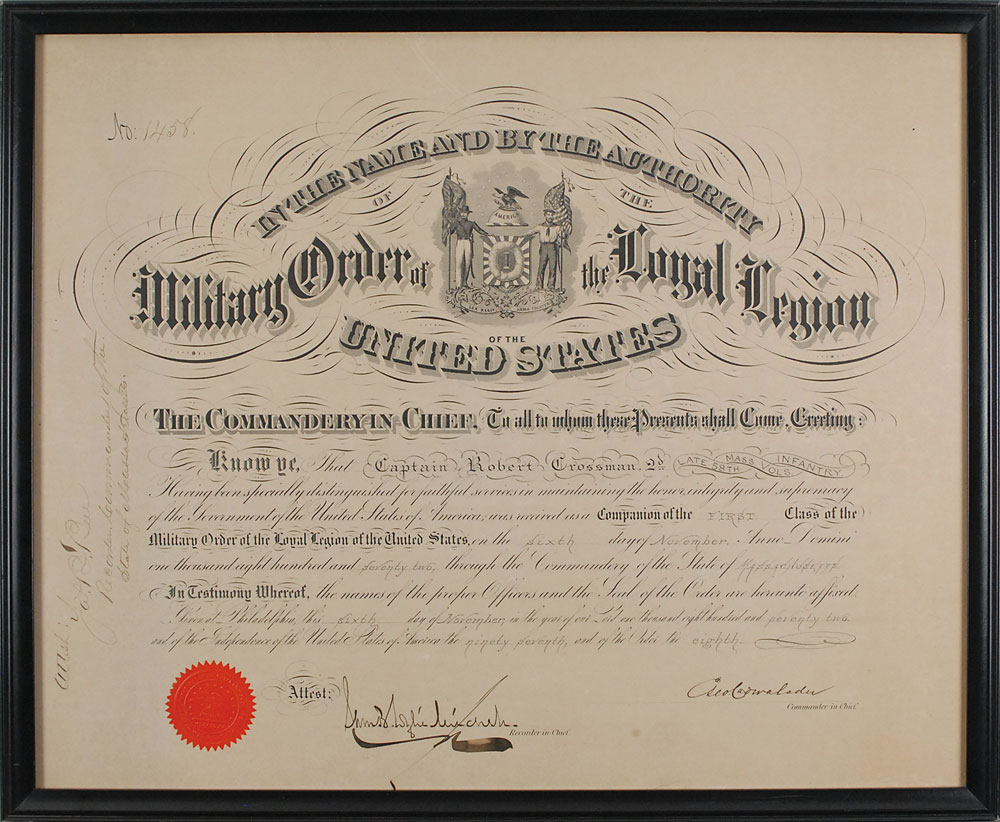 No: 1458.
IN THE NAME AND BY THE AUTHORITY
OF THE
AMERICA
Military Order of the Loyal Legion
OF THE
UNITED STATES
THE COMMANDERY IN CHIEF, To all to whom these Presents shall Come, Greeting:
Know ye, That Captain Robert Crossman. 2d LATE 58TH MASS VOLS. INFANTRY
Having been specially distinguished for faithful services in maintaining the honor, integrity and supremacy
of the Government of the United States of America, was received as a Companion of the FIRST Class of the
Military Order of the Loyal Legion of the United States, on the sixth day of November. Anno Domini
one thousand eight hundred and seventy two, through the Commandery of the State of Massachusetts
In Testimony Whereof, the names of the proper Officers and the Seal of the Order are hereunto affixed.
Given at Philadelphia, this sixth day of November, in the year of our Lord one thousand eight hundred and seventy two
and of the Independence of the United States of America the ninety seventh, and of the Order the eighth.
Attest:
Geo Cadwalader
Commander in Chief
Recorder in Chief
Attest:
Recorder Commandery of the
State of Massachusetts.